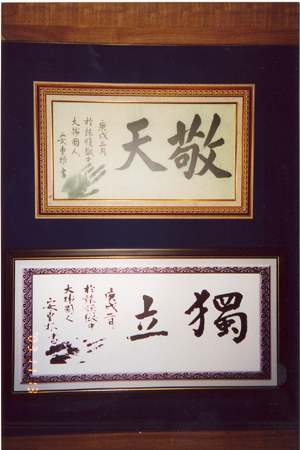 敬天
庚戌三月
於旅順獄中
大韓國人
安重根 書
獨立
庚戌二月
於旅順獄中
大韓國人
安重根 書